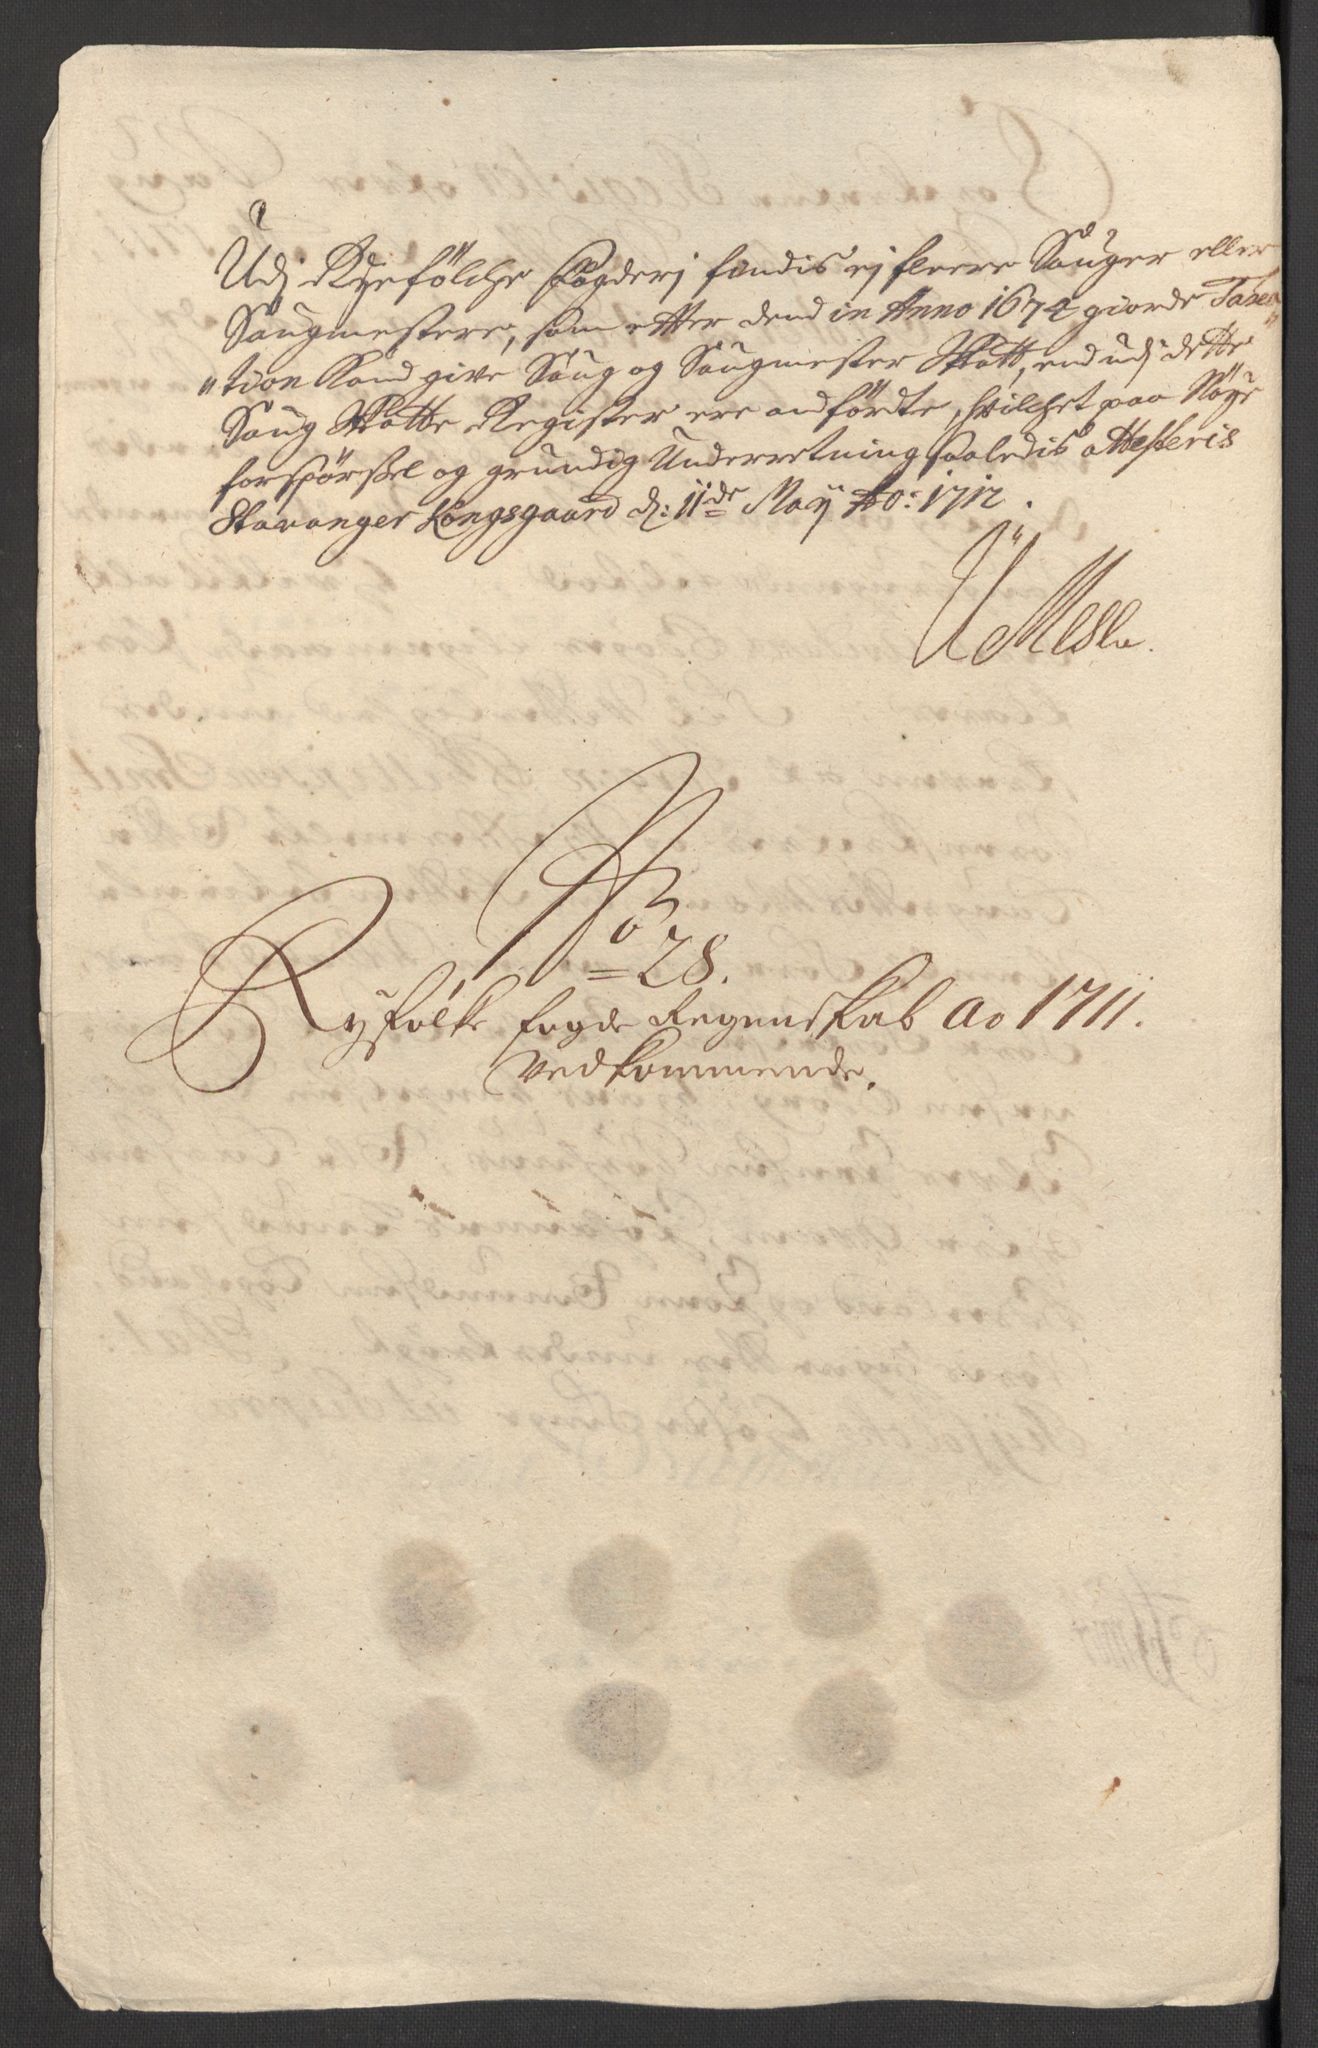 Udj Ryefölche fogderj findis ej fleere Sauger eller
Saugmestere, som efter dend in Anno 1674 giorde Taxa
"tion kand give Saug og Saugmester Skatt, end udj dette
Saug Skatte Register ere andförte, hvilchet paa Nöye
forspörssel og grundig Underretning saaledis attesteris
Stavanger Kongsgaard d: 11de Maij Ao: 1712.
No
28.
Ryfölke fogde Regenskab Ao 1711.
vedkommende.